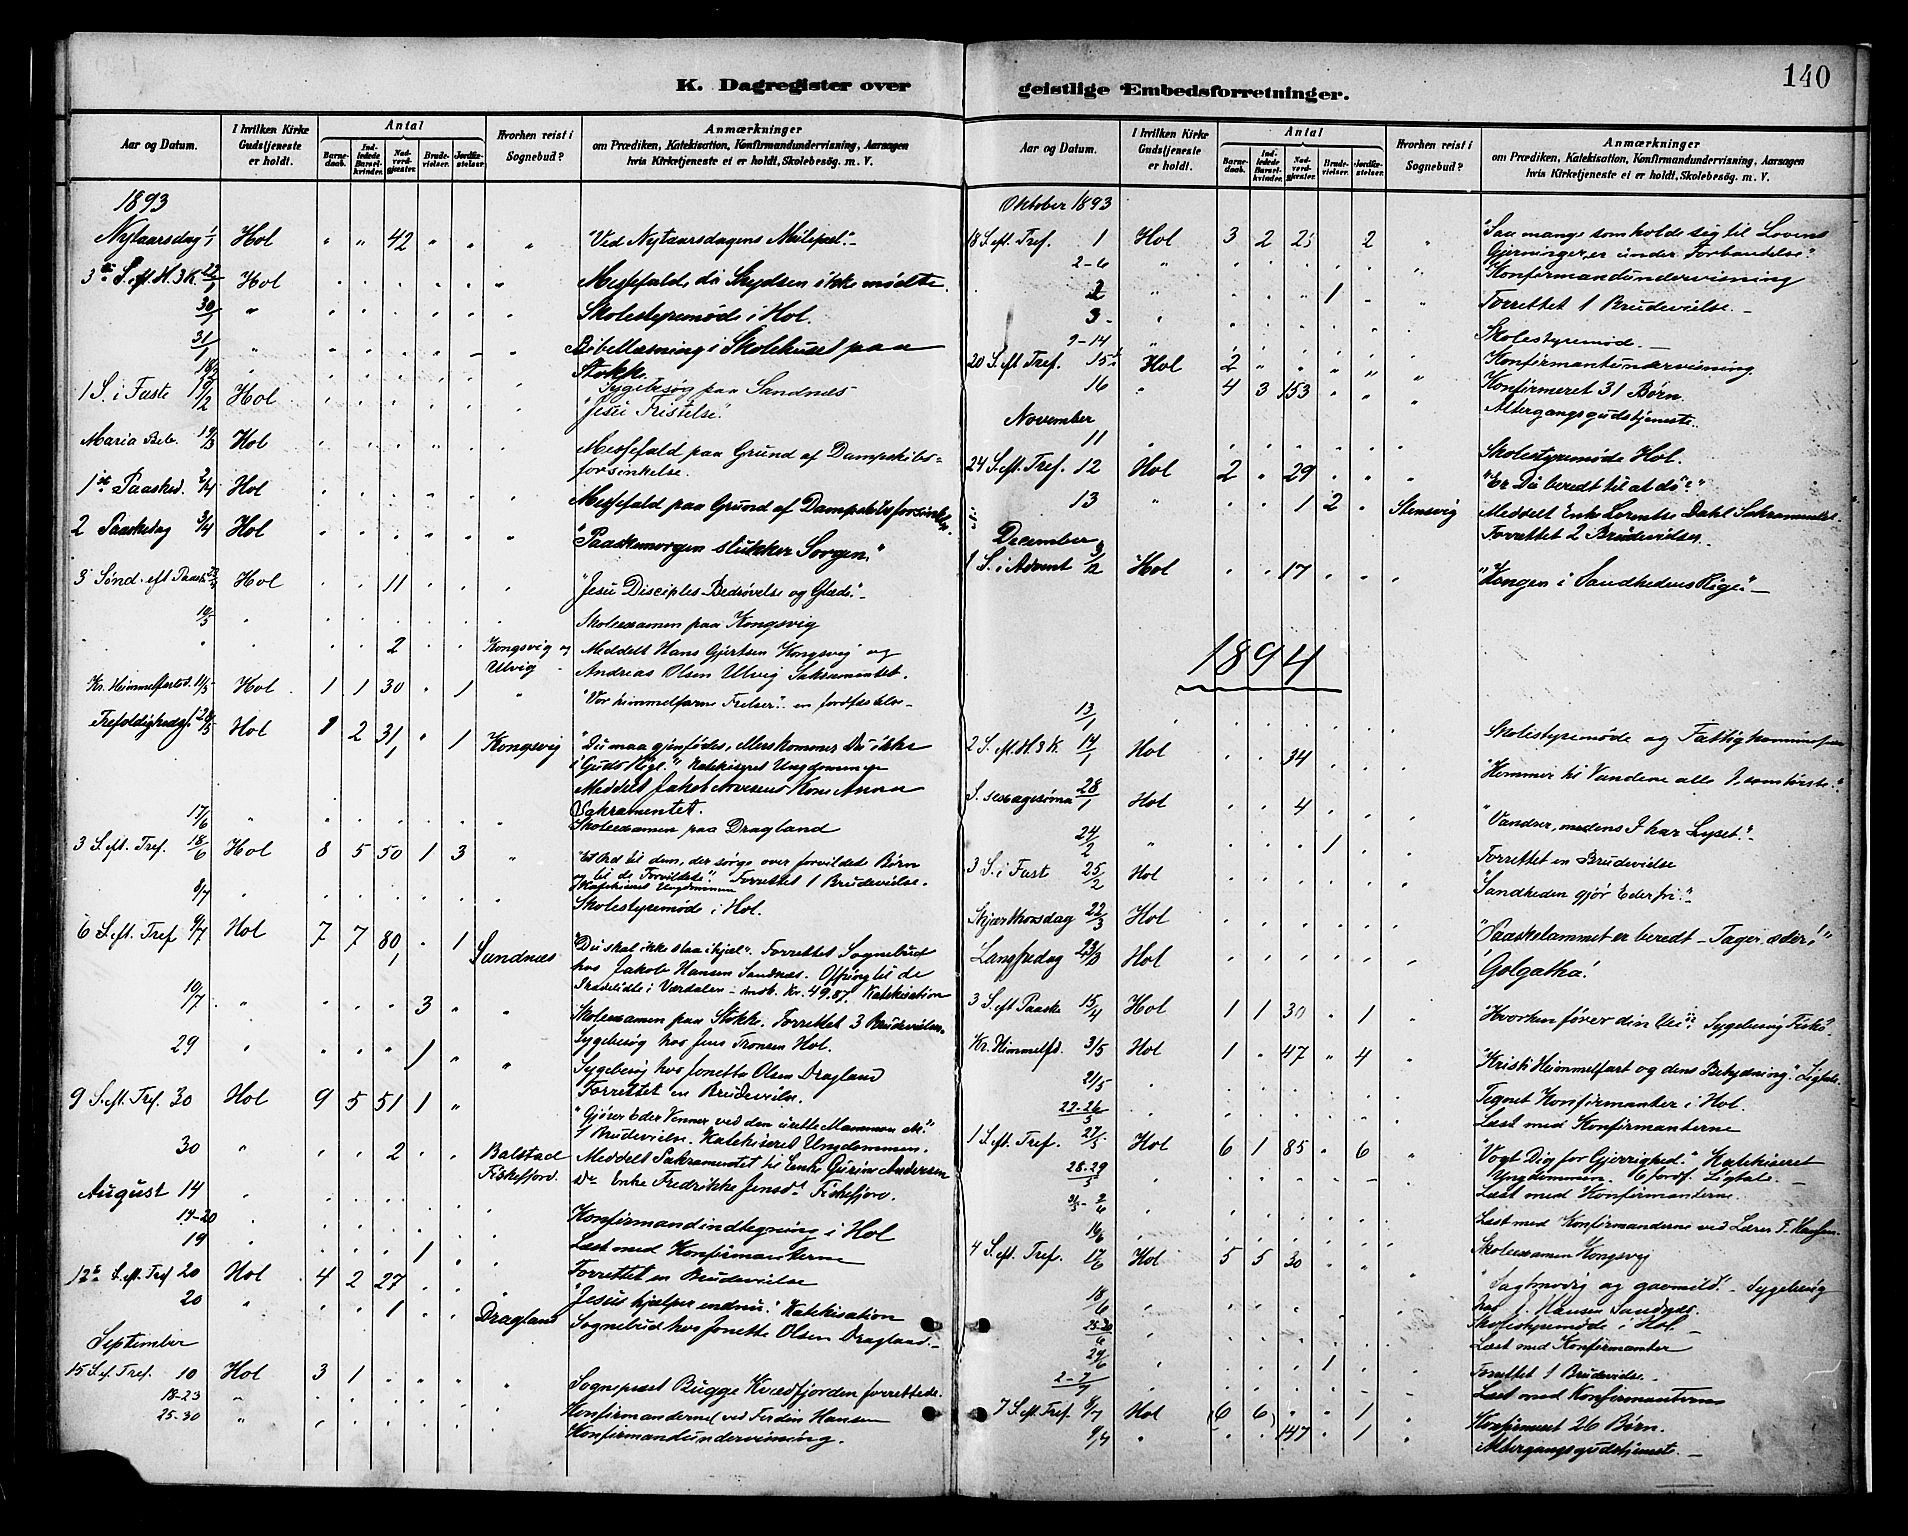 K. Dagregister over
Aar og Datum. I hvilken Kirke Gudstjeneste er holdt. Antal Barnedaab. Indledede Barselkvinder. Nadverdgjæster. Brudevielser. Jordfæstelser. Hvorhen reist i Sognebud? Anmærkninger om Prædiken, Katekisation, Konfirmandundervisning, Aarsagen hvis Kirketjeneste ei er holdt, Skolebesøg. m. V.
1893
Nytaarsdag 1/1 Hol " " 42 " " " "Ved Nytaarsdagens Milepæl."
3de S. eft. H. 3 K. 22/1 Hol Messefald, da Skydsen ikke mødte.
30/1 " Skolestyremøde i Hol.
31/1 " Bibellæsning i Skolehuset paa
Stokke.
18/2 " Sygebesøg paa Sandnes
1 S. i Faste 19/2 Hol "Jesu Fristelse."
Maria Beb. 19/3 Hol Messefald paa Grund af Dampskibs-
forsinkelse.
1ste Paasked. 2/4 Hol Messefald paa Grund af Dampskibsforsinkelse.
2 Paaskedag 3/4 Hol "Paaskemorgen slukker Sorgen."
3 Sønd. eft Paaske 23/4 Hol 11 "Jesu Disciples Bedrøvelse og Glæde."
10/5 " Skoleexamen paa Kongsvig
" 2 Kongsvig og Meddelt Hans Gjertsen Kongsvig og
Ulvig Andreas Olsen Ulvig Sakramentet.
Kr. Himmelfartsd. 11/5 Hol 1 1 30 " 1 " "Vor himmelfarne Frelser."
Trefoldighedsf. 28/5 Hol 1 2 31/1 " 1 Kongsvig "Du maa gjenfødes, ellers kommer Du ikke
i Guds Rige." Katekiseret Ungdommen
Meddelt Jakob Kone Anna
Sakramentet.
17/6 " Skoleexamen paa Dragland
3 S. eft. Tref. 18/6 Hol 8 5 50 1 3 " "Et Ord til dem, der sørge over forvildet Børn
og til de Forvildede." Forrettet 1 Brudevielse.
Katekiseret Ungdommen
8/7 " Skolestyremøde i Hol.
6 S. eft. Tref 9/7 Hol 7 7 80/1 " 1 Sandnæs "Du skal ikke slaa ihjel". Forrettet Sognebud
hos Jakob Hansen Sandnæs. Offring til de
Skadelidte i Værdalen – indb. Kr. 49.87. Katekisation
10/7 " 3 " Skoleexamen paa Stokke. Forrettet 3 Brudevielser.
Sygebesøg hos Jens Tronsen Hol.
29 " 1 " " Sygebesøg hos Jonetta Olsen Dragland
Forrettet en Brudevielse.
9 S. eft. Tref. 30 Hol 9 5 51 1 " "Gjører Eder Venner ved den urette Mammon"
1 Brudevielse. Katekiseret Ungdommen.
30 " 2 Balstad Meddelt Sakramentet til Enke Gurine Andersen
Fiskefjord. do Enke Fredrikke Jensdt Fiskefjord.
August 14 " Konfirmandindtegning i Hol
14-20 " Læst med Konfirmanterne
19 " 1 Forrettet en Brudevielse
12te S. eft. Tref 20 Hol 4 2 27 "Jesus hjælper endnu." Katekisation
20 " 1 Dragland Sognebud hos Jonetta Olsen Dragland.
September
15 S. ef. Tref. 10 Hol 3 1 Sognepræst Bugge Kvædfjorden forrettede.
18-23 " Konfirmanderne ved Ferdin Hansen
25-30 " Konfirmandundervisning.
geistlige Embedsforretninger. 140
Aar og Datum. I hvilken Kirke Gudstjeneste er holdt. Antal Barnedaab. Indledede Barselkvinder. Nadverdgjæster. Brudevielser. Jordfæstelser. Hvorhen reist i Sognebud? Anmærkninger om Prædiken, Katekisation, Konfirmandundervisning, Aarsagen hvis Kirketjeneste ei er holdt, Skolebesøg. m. V.
Oktober 1893
18 S. eft. Tref. 1 Hol 3 2 25 2 " "Saa mange som holde sig til Lovens
Gjerninger, er under Forbandelse"
2-6 " Konfirmandundervisning
2 " 1 Forrettet 1 Brudevielse.
3 " Skolestyremøde.
9-14 Konfirmantundervisning
20 S. eft Tref. 15de Hol 2 Konfirmeret 31 Børn.
16 " 4 3 153 Altergangsgudstjeneste.
November
11 " Skolestyremøde Hol.
24 S. eft. Tref. 12 Hol 2 " 29 "Er Du beredt til at dø?"
13 " 1 2 " Stensvig Meddelt Enke Lorentse Dahl Sakramentet.
Forrettet 2 Brudevielser.
December
1 S. i Advent 3/12 Hol 17 "Kongen i Sandhedens Rige."
1894
13/1 Skolestyremøde og
2 S. eft. H. 3 K. 14/1 Hol 34 "Kommer til Vandene alle I, som tørste."
S. sexagesima 28/1 Hol 4 "Vandrer, medens I har Lyset."
24/2 " 1 Forrettet en Brudevielse
3 S. i Fast 25/2 Hol "Sandheden gjør Eder fri."
Skjærthorsdag 22/3 Hol "Paaskelammet er beredt – Tager, æder!"
Langfredag 23/3 Hol "Golgatha!
3 S. eft Paaske 15/4 Hol 1 1 30 " 1 "Hvorhen fører din Vei". Sygebesøg
Kr. Himmelfd. 3/5 Hol 1 " 47 " 4 "Kristi Himmelfart og dens Betydning". Ligtale.
21/5 Tegnet Konfirmanter i Hol.
22-26/5 Læst med Konfirmanterne
1 S. eft. Tref. 27/5 Hol 6 1 85 " 6 "Vogt Dig for Gjerrighed." Katekiseret
Ungdommen. 6 Jordf. Ligtale.
28-29/5 Læst med Konfirmanterne.
31/5-2/6 Læst med Konfirmanderne ved Lærer F. Hansen.
16/6 Skoleexamen Kongsvig
4 S. eft. Tref. 17/6 Hol 5 5 30 "Sagtmodig og gavmild." – Sygebesøg
hos J. Hansen Sandnæs.
18/6 Skolestyremøde i Hol
25-30/6 Læst med Konfirmanter
29/6 " 1 Forrettet 1 Brudevielse.
2-7/7 Læst med Konfirmanterne
7 S. eft Tref. 8/7 Hol (6 6) " " 1 Konfirmeret 26 Børn.
9/7 " 147 1 Altergangsgudstjenest.